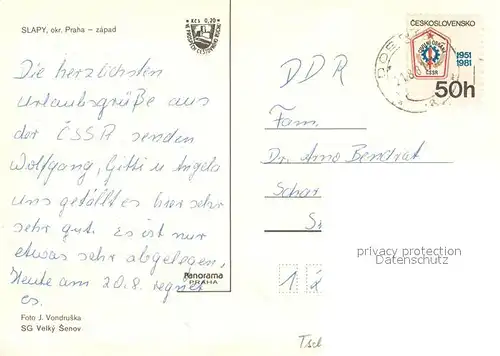 SLAPY, okr. Praha – západ
Kčs 0,20
Die herzlichsten
Urlaubsgrüße aus
der ČSSR senden
Wolfgang, Gitti u Angela
uns gefällt es hier sehr
sehr gut. Es ist nur
etwas sehr abgelegen,
Heute am 20.8. regnet
es.
Panorama
PRAHA
Foto J. Vondruška
SG Velký Šenov
ČESKOSLOVENSKO
1951
1981
ČSSR
50h
DDR
Fam.
Dr. Arno Bendrat
Schar
S
1 2
privacy protection
Datenschutz